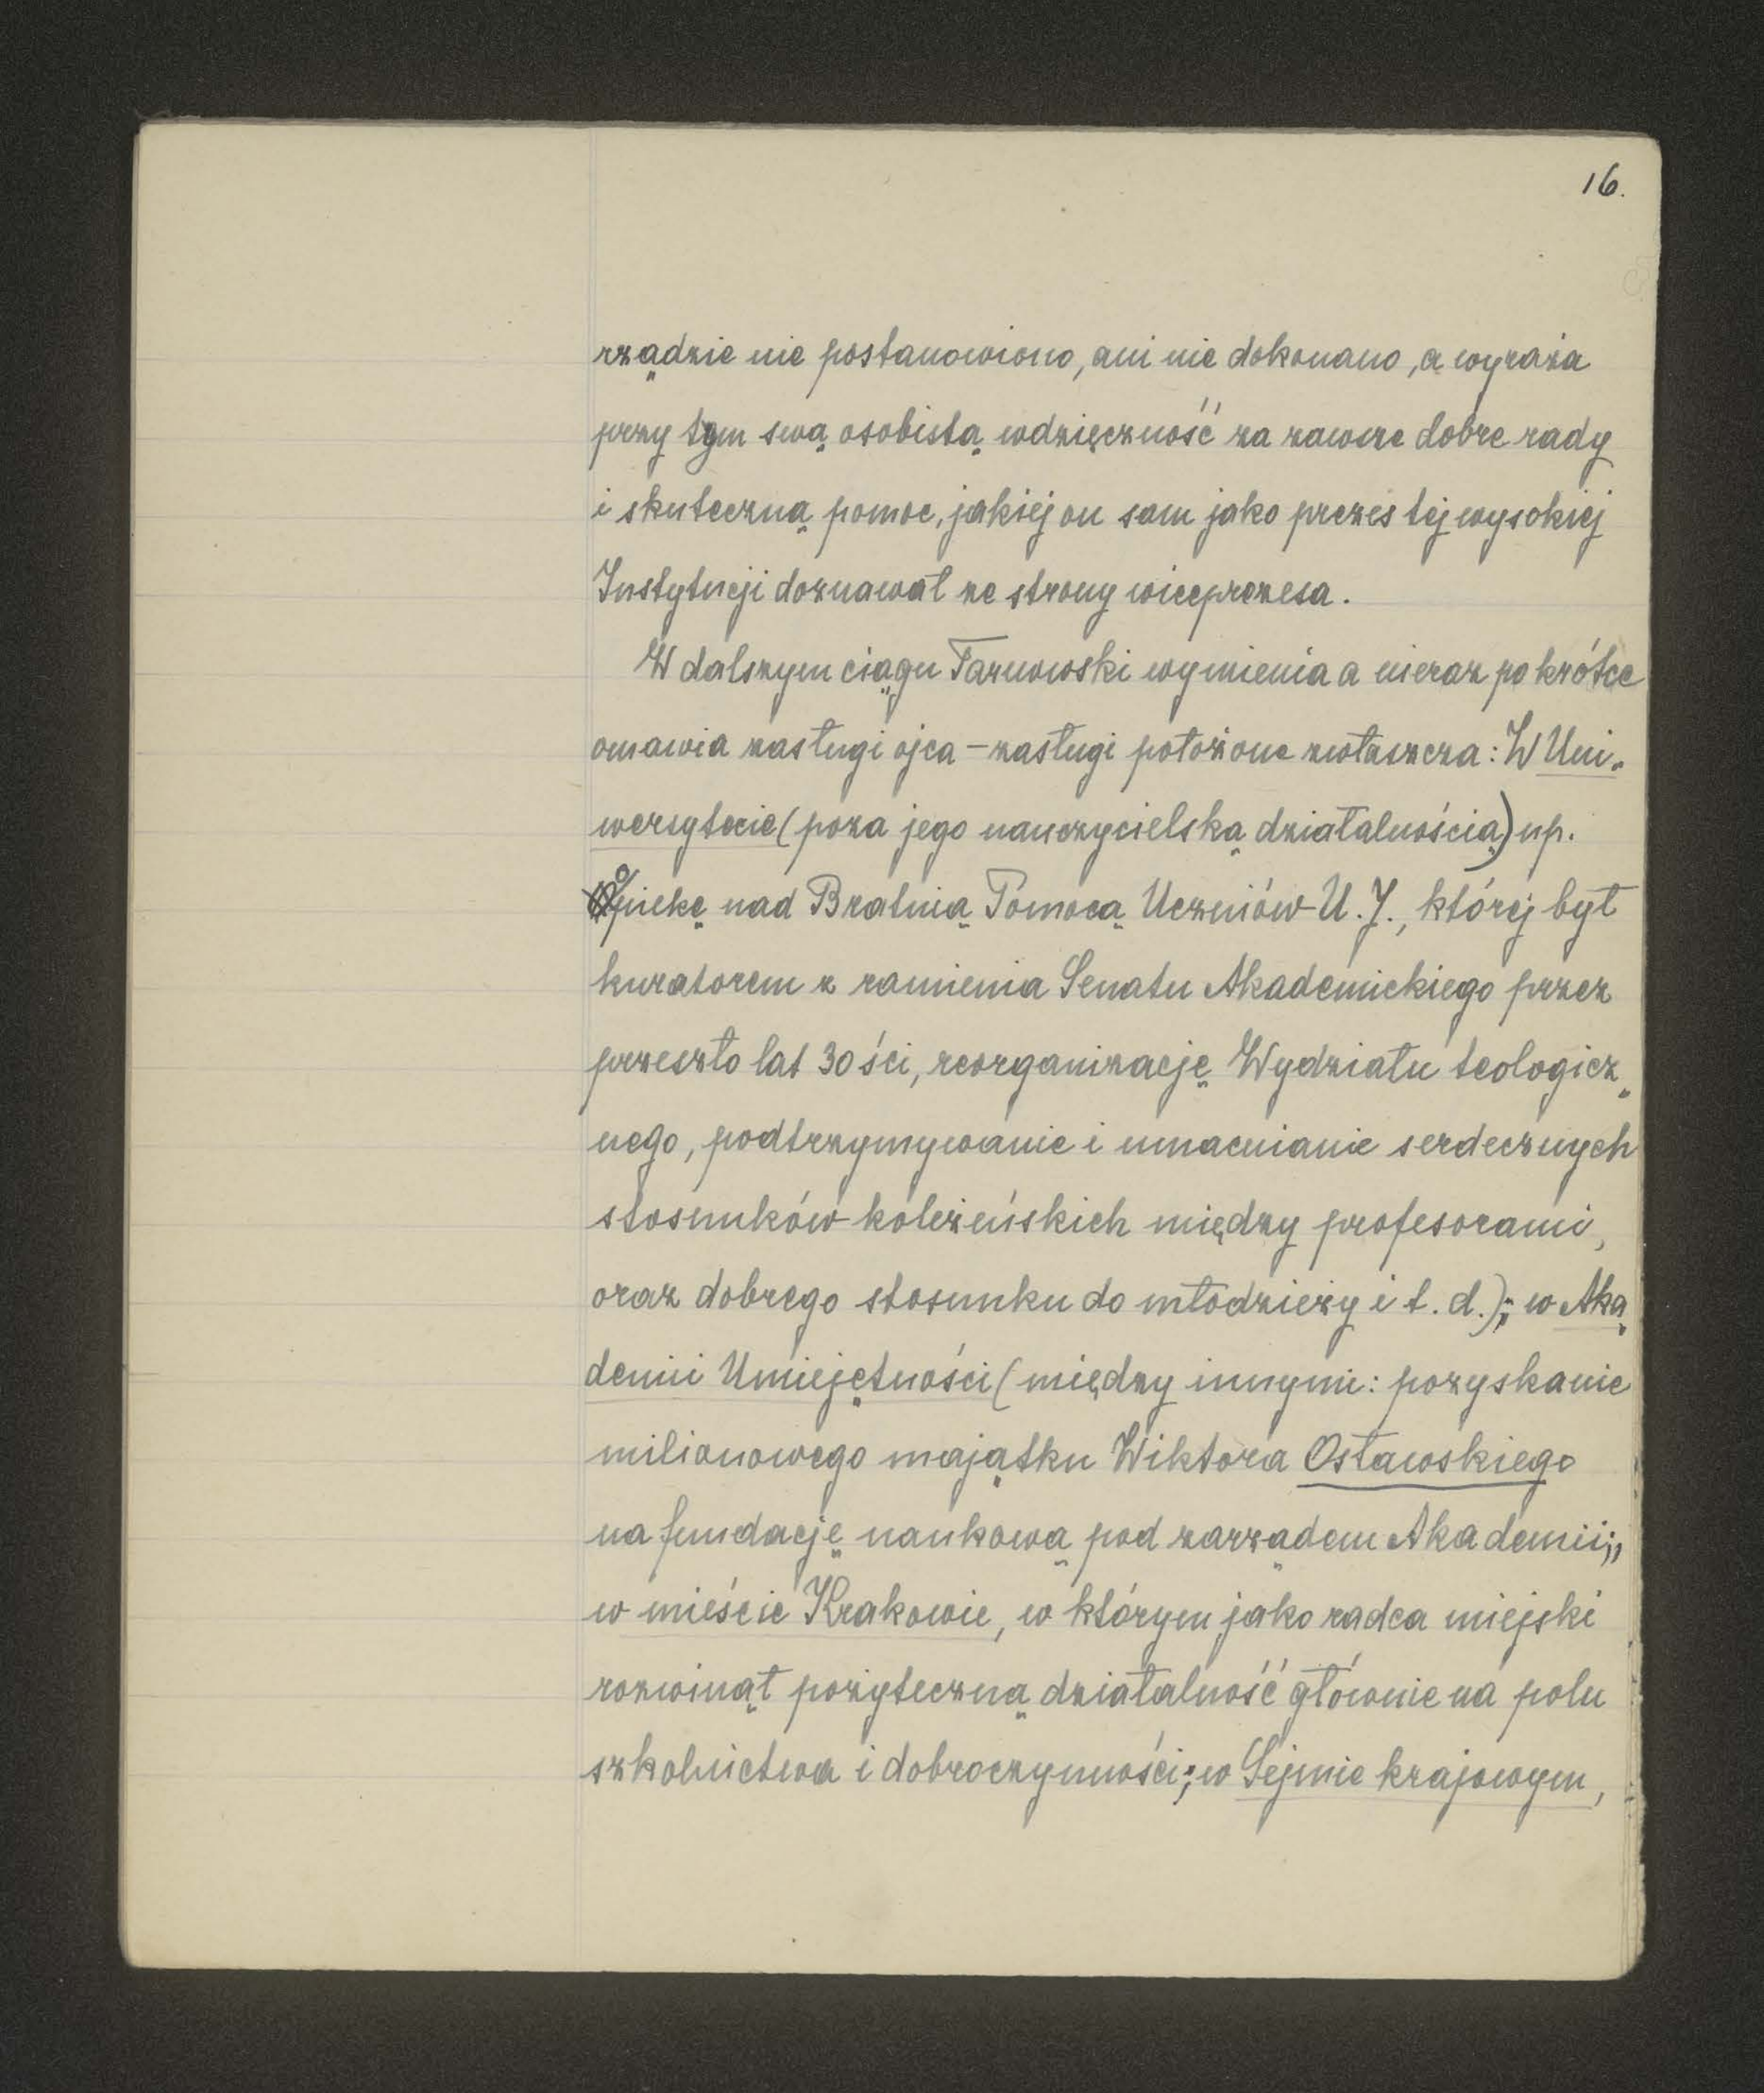 16.
rządzie nie postanowiono, ani nie dokonano, a wyraża
przy tym swą osobistą wdzięczność za zawsze dobre rady
i skuteczną pomoc, jakiej on sam jako prezes tej wysokiej
Instytucji doznawał ze strony wiceprezesa.
W dalszym ciągu Tarnowski wymienia a nieraz po krótce
omawia zasługi ojca – zasługi położone zwłaszcza: W Uni-
wersytecie (poza jego nauczycielską działalnością) np.
opiekę nad Bratnią Pomocą Uczniów U. J., której był
kuratorem z ramienia Senatu Akademickiego przez
przeszło lat 30 ści, reorganizację Wydziału teologicz-
nego, podtrzymywanie i umacnianie serdecznych
stosunków koleżeńskich między profesorami,
oraz dobrego stosunku do młodzieży i t. d.); w Aka-
demii Umiejętności (między innymi: pozyskanie
milionowego majątku Wiktora Osławskiego
na fundację naukową pod zarządem Akademii;,,
w mieście Krakowie, w którym jako radca miejski
rozwinął pożyteczną działalność głównie na polu
szkolnictwa i dobroczynności; w Sejmie krajowym,